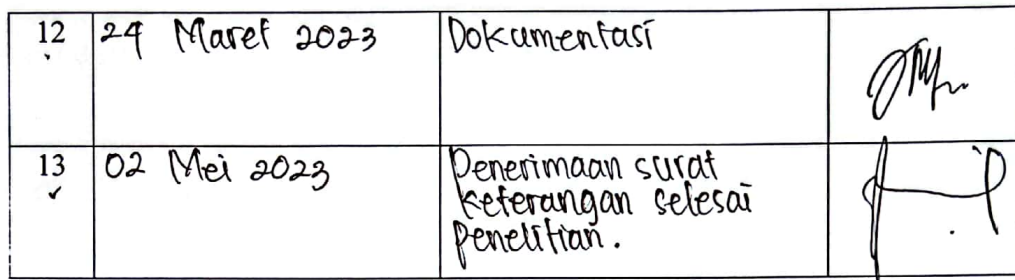 12 24 Maret 2023 Dokumentasi
13 02 Mei 2023 Penerimaan surat
keterangan selesai
penelitian.